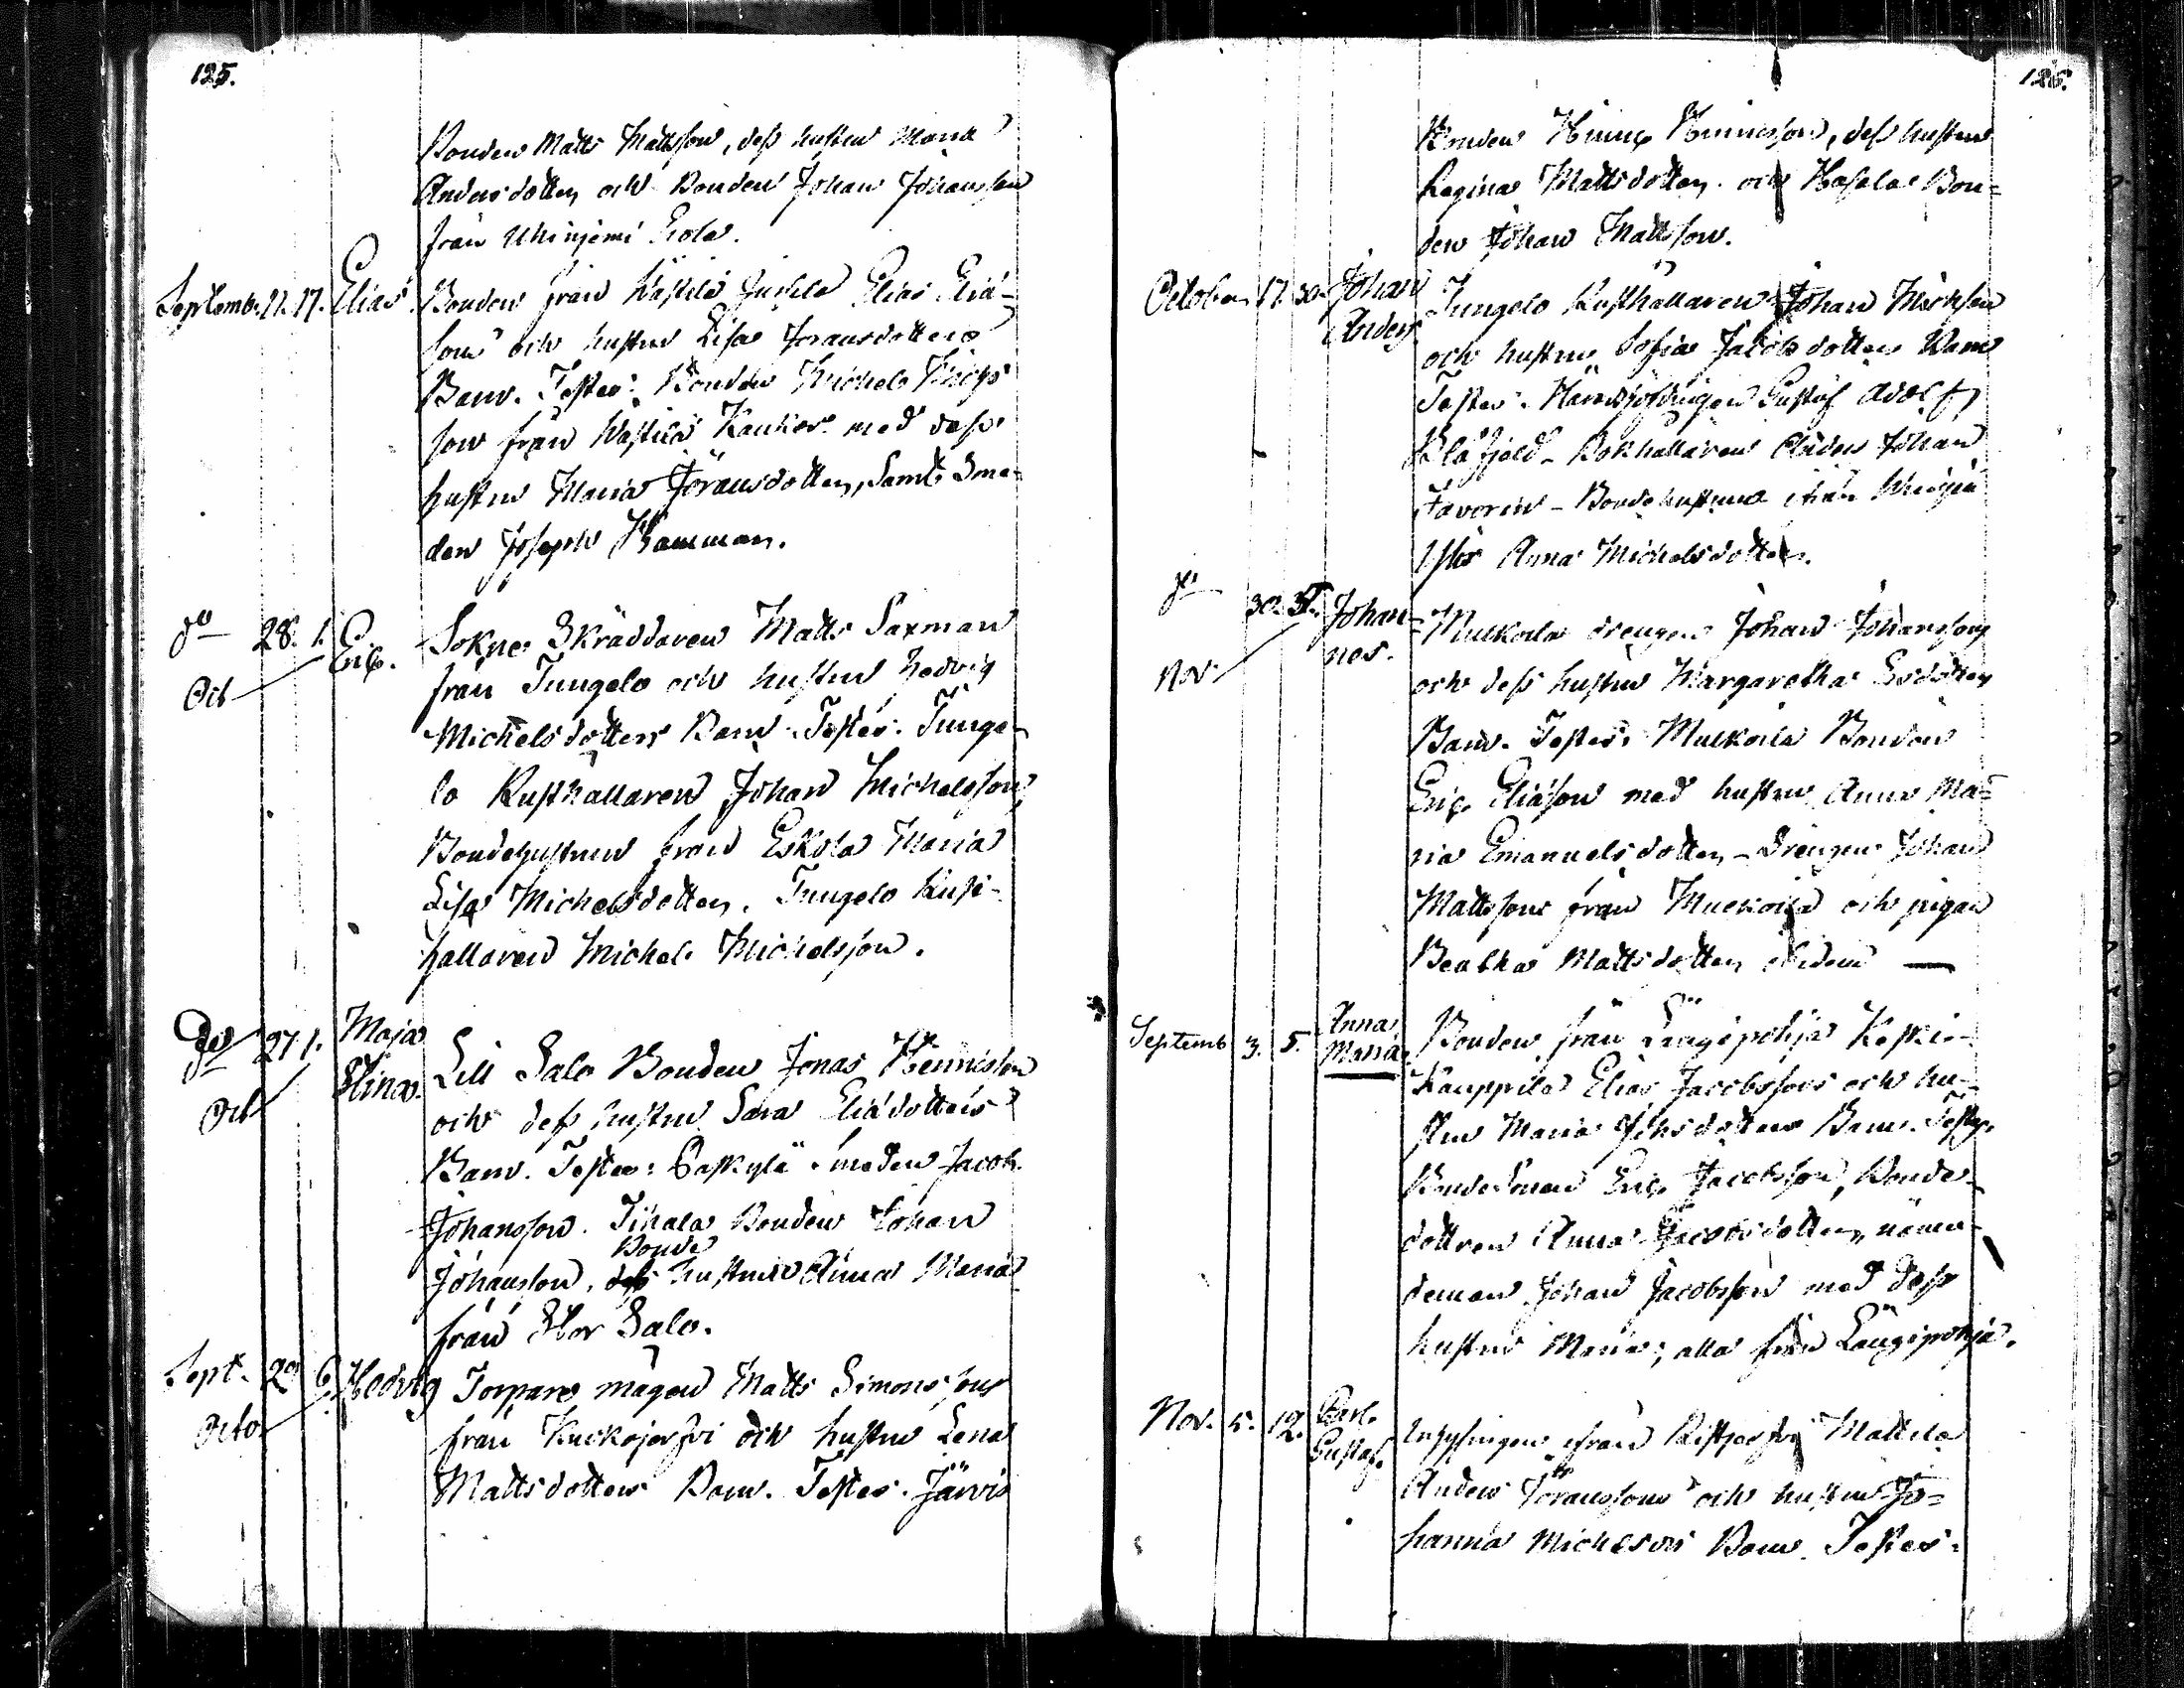 125.
Bonden Matts Mattsson, dess hustru Maria
Andersdotter och Bonden Johan Johansson
från Uhinjemi Erola.
Septemb. 11. 17. Elias Bonden från Wästilä Jussila Elias Elia-
sons och hustru Lisa Joransdotters
Barn. Testes: Bonden Michel Michels
son från Wästilä Kaukos med dess
hustru Maria Joransdotter, Samt Sme-
den Joseph Hamman.
do 28. 1. Eric. Sokne Skräddaren Matts Saxman
Oct från Jungelo och hustru Hedvig
Michelsdotters Barn. Testes: Junge-
lo Rusthållaren Johan Michelsson,
Bondehustrun från Eskola Maria
Lisa Michelsdotter. Jungelo Rust-
hållaren Michel Michelsson.
do 27 1. Maja Stina. Lill Salo Bonden Jonas Hennicsson
Oct och dess hustru Sara Eliædotters
Barn. Testes: Smeden Jacob
Johansson. Bonden Johan
Bonde
Johansson, dess hustru Anna Maria
från Stor Salo.
Sept. 29 6. Hedvig Torpare mågen Matts Simonssons
Octo från Kuckojerfvi och hustru Lena
Mattsdotters Barn. Testes. Järvis
126.
Bonden Hinric Hinricsson, dess hustru
Regina Mattsdotter och Bon=
den Johan Mattsson.
October 17. 30. Johan Anders. Jungelo Rusthållaren Johan Michelsson
och hustru Sofia Jacobsdotters Barn
Testes: Häradshöfdingen Gustaf Adolf
Blåfjeld - Bokhållaren Johan
Favorin - Bondehustrun ifrån
Anna Michelsdotter.
do 30. 5. Johan= nes. Muckoila drengen Johan Johanssons
Nov och dess hustru Margaretha Esdotters
Barn. Testes: Muckoila Bonden
Eric Eliasson med hustru Anna Ma=
ria Emanuelsdotter - Drengen Johan
Mattsson från Muckoila och pigan
Beatha Mattsdotter ibidem —
Septemb 3. 5. Anna Maria. Bonden från Längipohja Keski-
Kauppila Elias Jacobssons och hu-
stru Maria Johsdotters Barn. Testes.
BondeSonen Eric Jacobsson, Bonde-
dottren Anna Jacobsdotter, näm-
deman Johan Jacobsson med dess
hustru Maria; alla från Längipohja.
Nov. 5. 12. Carl Gustaf. ifrån Ristjerfvi Mattila
Anders Joranssons och hustru Jo=
hanna Michelsd:s Barn. Testes: